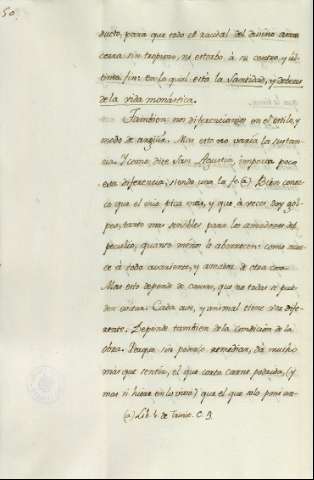 50
ducto, para que todo el raudal del divino amor
corra sin tropiezo, ni estorbo à su centro, y úl-
timo fin: en lo qual està la Santidad, y deberes
de la vida monástica.
Tambien nos diferenciamos en el estilo, y
modo de arguir. Mas esto no varía la sustan-
cia. Y como dice San Agustin, importa poco
esta diferencia, siendo una la fe (a) Bien conoz-
co que el mio pica mas, y que à veces doy gol-
pes, tanto mas sensibles para los amadores del
peculio, quanto menos lo aborrecen: como suce-
de à todo avariento, y amador de otra cosa.
Mas esto depende de causas, que no todas se pue-
den evitar. Cada ave, y animal tiene voz dife-
rente. Depende tambien de la condicion de la
obra. Porque sin poderlo remediar, dà mucho
màs que sentir, el que corta carne podrida, (y
mas si hiere en lo vivo) que el que solo pone
(a) Lib. 4. de C. 9.